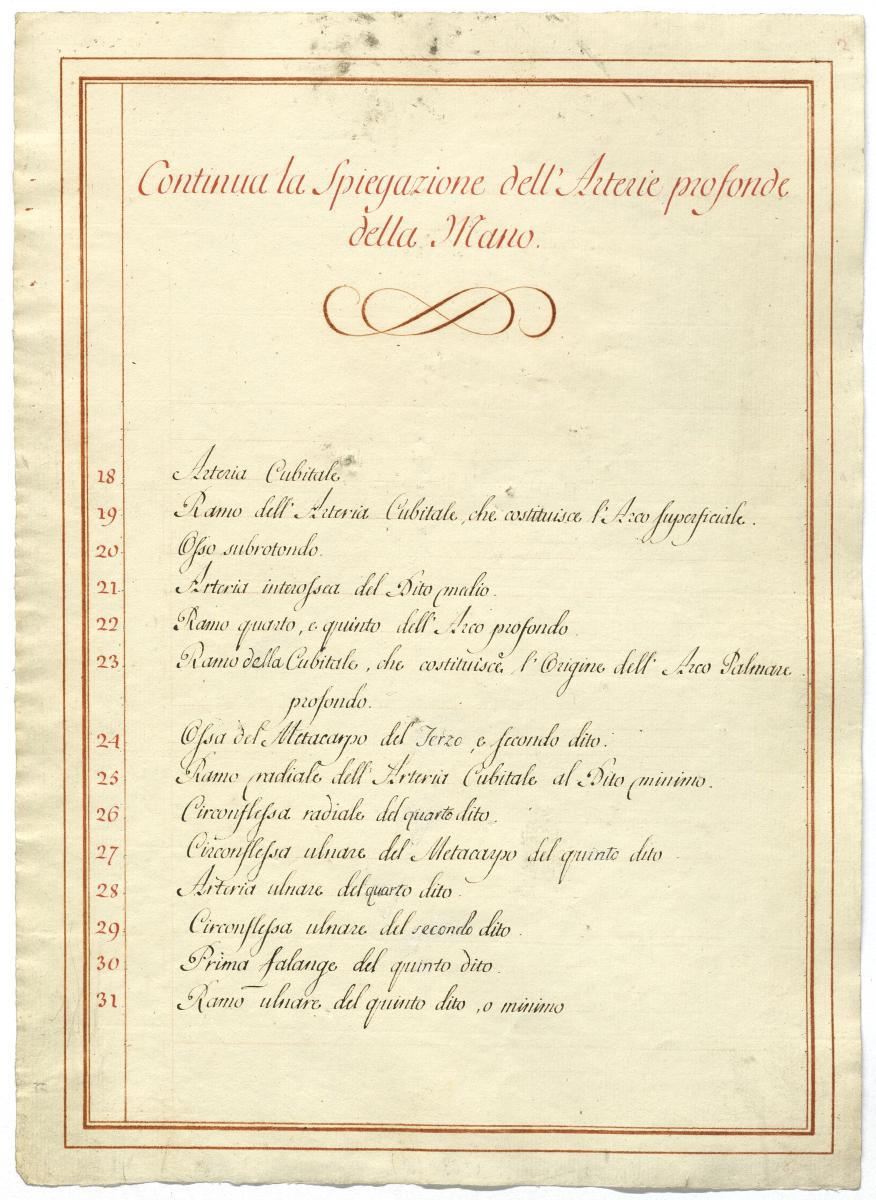 2
Continua la Spiegazione dell' Arterie profonde
della Mano.
18 Arteria Cubitale
19 Ramo dell' Arteria Cubitale, che costituisce l'Arco superficiale.
20 Osso subrotondo.
21 Arteria interossea del Dito medio.
22 Ramo quarto, e quinto dell' Arco profondo
23 Ramo della Cubitale, che costituisce l' Origine dell' Arco Palmare
profondo.
24 Ossa del Metacarpo del Terzo, e secondo dito.
25 Ramo radiale dell' Arteria Cubitale al Dito minimo.
26 Circonflessa radiale del quarto dito.
27 Circonflessa ulnare del Metacarpo del quinto dito
28 Arteria ulnare del quarto dito
29 Circonflessa ulnare del secondo dito.
30 Prima falange del quinto dito.
31 Ramo ulnare del quinto dito, o minimo